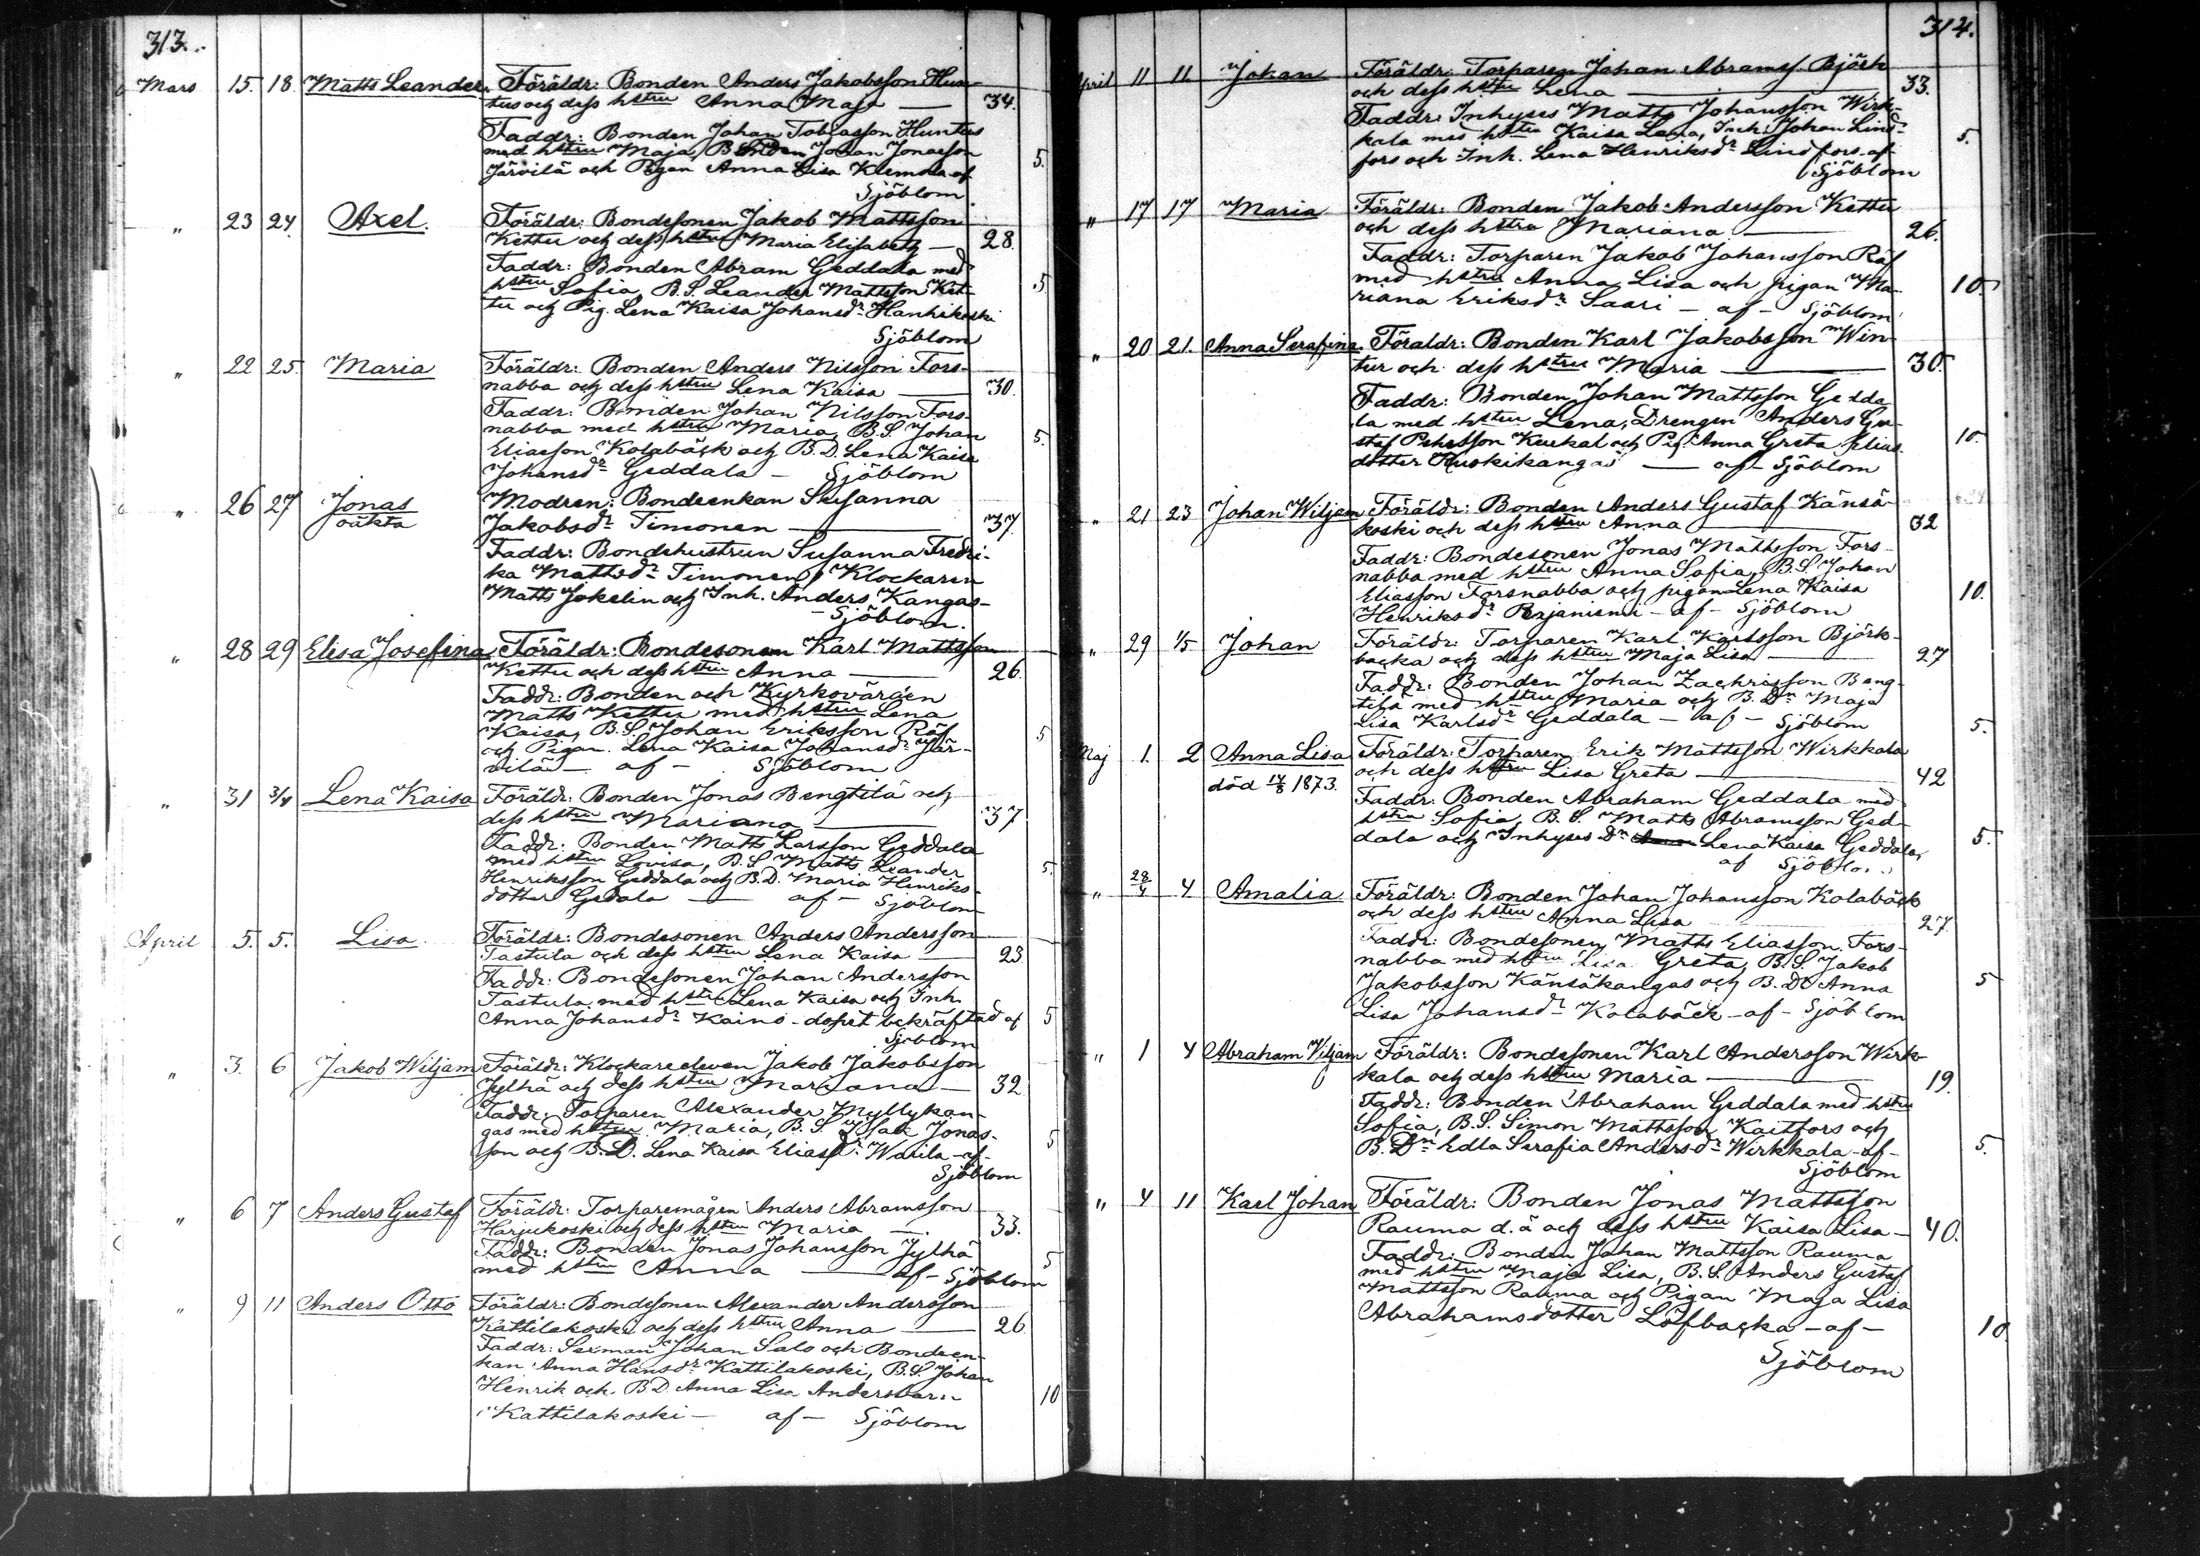 313.
Mars 15. 18. Matts Leander. Föräldr: Bonden Anders Jakobsson Hun-
tus och dess hstru Anna Maja — 34.
Faddr: Bonden Johan Tobiasson Huntus
med hstru Maja, Bonden Johan Jonasson
Järvilä och Pigan Anna Lisa Klemola af 5.
Sjöblom
" 23 24. Axel. Föräldr: Bondesonen Jakob Mattsson
Kettu och dess hstru Maria Elisabeth — 28.
Faddr: Bonden Abram Geddala med
hstru Sofia, B.S. Leander Mattsson Ket- 5.
tu och Pig. Lena Kaisa Johansdr Hanhikoski
Sjöblom
" 22 25. Maria Föräldr: Bonden Anders Nilsson Fors-
nabba och dess hstru Lena Kaisa — 30.
Faddr: Bonden Johan Nilsson Fors-
nabba med hstru Maria, B.S. Johan 5.
Eliasson Kolabäck och B.D. Lena Kaisa
Johansdr Geddala — Sjöblom
" 26 27 Jonas Modren: Bondeenkan Susanna
oäkta Jakobsdr Timonen — 37.
Faddr: Bondehustrun Susanna Fredri-
ka Mattsdr Timonen, Klockaren
Matts Jokelin och Inh. Anders Kangas-
— Sjöblom.
" 28 29 Elisa Josefina Föräldr: Bondesonen Karl Mattsson
Kettu och dess hstru Anna — 26.
Faddr: Bonden och Kyrkovärden
Matts Kettu med hstru Lena
Kaisa, B.S. Johan Eriksson Räf 5
och Pigan Lena Kaisa Johansdr Jär-
vilä — af — Sjöblom
" 31 3/4 Lena Kaisa Föräldr: Bonden Jonas Bengtilä och
dess hstru Mariana — 37
Faddr: Bonden Matts Larsson Geddala
med hstru Lovisa, B.S. Matts Leander 5.
Henriksson Geddala och B.D. Maria Henriks-
dotter Gedala — af — Sjöblom
April 5. 5. Lisa Föräldr: Bondesonen Anders Andersson
Tastula och dess hstru Lena Kaisa — 23
Faddr: Bondesonen Johan Andersson
Tastula med hstru Lena Kaisa och Inh.
Anna Johansdr Kaino — dopet bekräftad af 5
Sjöblom
" 3. 6 Jakob Wiljam Föräldr: Klockareeleven Jakob Jakobsson
Jylhä och dess hstru Mariana — 32
Faddr: Torparen Alexander Myllykan-
gas med hstru Maria, B.S. Isak Jonas- 5
son och B.D. Lena Kaisa Eliasdr Warila — af —
Sjöblom
" 6 7 Anders Gustaf Föräldr: Torparemågen Anders Abramsson
Harjukoski och dess hstru Maria — 33.
Faddr: Bonden Jonas Johansson Jylhä 5
med hstru Anna — af — Sjöblom
" 9 11 Anders Otto Föräldr: Bondesonen Alexander Andersson
Kattilakoski och dess hstru Anna — 26
Faddr: Sexman Johan Salo och Bondeen-
kan Anna Hansdr Kattilakoski, B.S. Johan
Henrik och B.D. Anna Lisa Andersbarn 10
Kattilakoski — af — Sjöblom
314.
April 11 11 Johan Föräldr: Torparen Johan Abramss. Björk
och dess hstru Lena — 33.
Faddr: Inhyses Matts Johansson Wirk-
kala med hstru Kaisa Lena, Inh. Johan Lind- 5.
fors och Inh. Lena Henriksdr Lindfors — af —
Sjöblom
" 17 17 Maria Föräldr: Bonden Jakob Andersson Kettu
och dess hstru Mariana — 26.
Faddr: Torparen Jakob Johansson Räf
med hstru Anna Lisa och pigan Ma- 10.
riana Eriksdr Saari — af — Sjöblom
" 20 21. Anna Serafina Föräldr: Bonden Karl Jakobsson Win-
tur och dess hstru Maria — 30.
Faddr: Bonden Johan Mattsson Gedda-
la med hstru Lena, Drengen Anders Gu-
staf Pehrsson Kurkal och Pig. Anna Greta Elias- 10.
dotter Ruskikangas — af — Sjöblom
" 21 23 Johan Wiljam Föräldr: Bonden Anders Gustaf Känsä-
koski och dess hstru Anna — 32
Faddr: Bondesonen Jonas Mattsson Fors-
nabba med hstru Anna Sofia, B.S. Johan
Eliasson Forsnabba och pigan Lena Kaisa 10.
Henriksdr Rajaniemi — af — Sjöblom
" 29 1/5 Johan Föräldr: Torparen Karl Karlsson Björk-
backa och dess hstru Maja Lisa — 27
Faddr: Bonden Johan Zachrisson Beng-
tilä med hstru Maria och B.Dn Maja
Lisa Karlsdr Geddala — af — Sjöblom 5.
Maj 1. 2 Anna Lisa Föräldr: Torparen Erik Mattsson Wirkkala
död 14/8 1873. och dess hstru Lisa Greta — 42
Faddr: Bonden Abraham Geddala med
hstru Sofia, B.S. Matts Abramsson Ged-
dala och Inhyses Dn Lena Kaisa Geddala, 5.
af Sjöblo..
" 28/4 4 Amalia Föräldr: Bonden Johan Johansson Kolabäck
och dess hstru Anna Lisa 27.
Faddr: Bondesonen Matts Eliasson Fors-
nabba med hstru Lisa Greta, B.S. Jakob
Jakobsson Känsäkangas och B.D. Anna 5
Lisa Johansdr Kolabäck — af — Sjöblom
" 1 4 Abraham Viljam Föräldr: Bondesonen Karl Andersson Wirk-
kala och dess hstru Maria — 19.
Faddr: Bonden Abraham Geddala med hstru
Sofia, B.S. Simon Mattsson Kaitfors och
B.Dn Edla Serafia Andersdr Wirkkala — af — 5.
Sjöblom
" 4 11 Karl Johan Föräldr: Bonden Jonas Mattsson
Rauma d.ä och dess hstru Kaisa Lisa — 40.
Faddr: Bonden Johan Mattsson Rauma
med hstru Maja Lisa, B.S. Anders Gustaf
Mattsson Rauma och Pigan Maja Lisa
Abrahamsdotter Löfbacka — af — 10.
Sjöblom